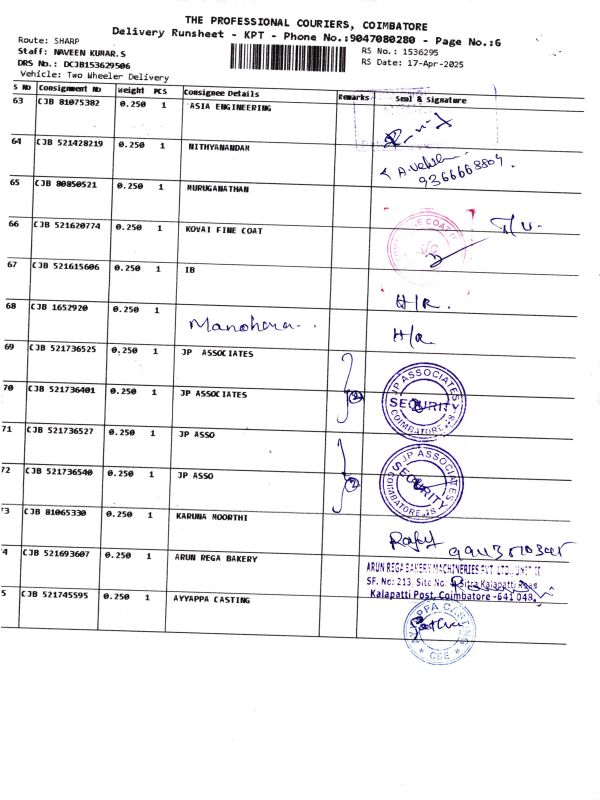 THE PROFESSIONAL COURIERS, COIMBATORE
Delivery Runsheet - KPT - Phone No.:9047080280 - Page No.:6
Route: SHARP
Staff: NAVEEN KUMAR.S
DRS No.: DCJB153629506
Vehicle: Two Wheeler Delivery
RS No.: 1536295
RS Date: 17-Apr-2025
S No Consignment No Weight PCS Consignee Details Remarks Seal & Signature
63 CJB 81075382 0.250 1 ASIA ENGINEERING
64 CJB 521428219 0.250 1 NITHYANANDAM
9366668804.
65 CJB 80850521 0.250 1 MURUGANATHAN
66 CJB 521620774 0.250 1 KOVAI FINE COAT
67 CJB 521615606 0.250 1 IB
H/R.
68 CJB 1652920 0.250 1 Manohara..
H/R.
69 CJB 521736525 0.250 1 JP ASSOCIATES
70 CJB 521736401 0.250 1 JP ASSOCIATES
2
JP ASSOCIATES
SECURITY
COIMBATORE
71 CJB 521736527 0.250 1 JP ASSO
72 CJB 521736540 0.250 1 JP ASSO
2
JP ASSOCIATES
SECURITY
COIMBATORE
73 CJB 81065330 0.250 1 KARUNA MOORTHI
74 CJB 521693607 0.250 1 ARUN REGA BAKERY
ARUN REGA BAKERY MACHINERIES PVT LTD., UNIT II
SF. No: 213, Site No: Kalapatti
Kalapatti Post, Coimbatore - 641 048.
75 CJB 521745595 0.250 1 AYYAPPA CASTING
AYYAPPA CASTING
* CBE *